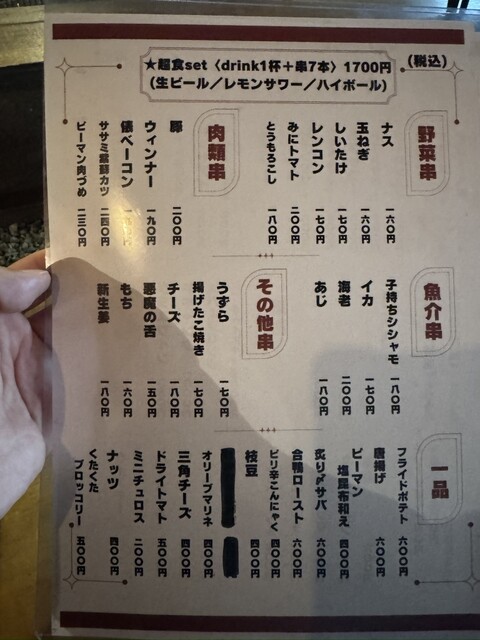 ★set〈drink1杯＋串7本〉1700円
(税込)
(生ビール／レモンサワー／ハイボール)
野菜串
ナス 一六〇
玉ねぎ 一六〇
しいたけ 一七〇
レンコン 一七〇
みにトマト 二〇〇
とうもろこし 一八〇
肉類串
豚 二〇〇
ウィンナー 一九〇
俵ベーコン 一九〇
ササミ紫蘇カツ 二四〇
ピーマン肉づめ 二三〇
魚介串
子持ちシシャモ 一八〇
イカ 一七〇
海老 二〇〇
あじ 一八〇
その他串
うずら 一七〇
揚げたこ焼き 一七〇
チーズ 一八〇
悪魔の舌 一五〇
もち 一六〇
新生姜 一八〇
一品
フライドポテト 六〇〇
唐揚げ 六〇〇
ピーマン塩昆布和え 四〇〇
炙り〆サバ 六〇〇
合鴨ロースト 六〇〇
ピリ辛こんにゃく 四〇〇
枝豆 四〇〇
オリーブマリネ 四〇〇
三角チーズ 四〇〇
ドライトマト 五〇〇
ミニチュロス 二〇〇
ナッツ 四〇〇
くたくたブロッコリー 五〇〇